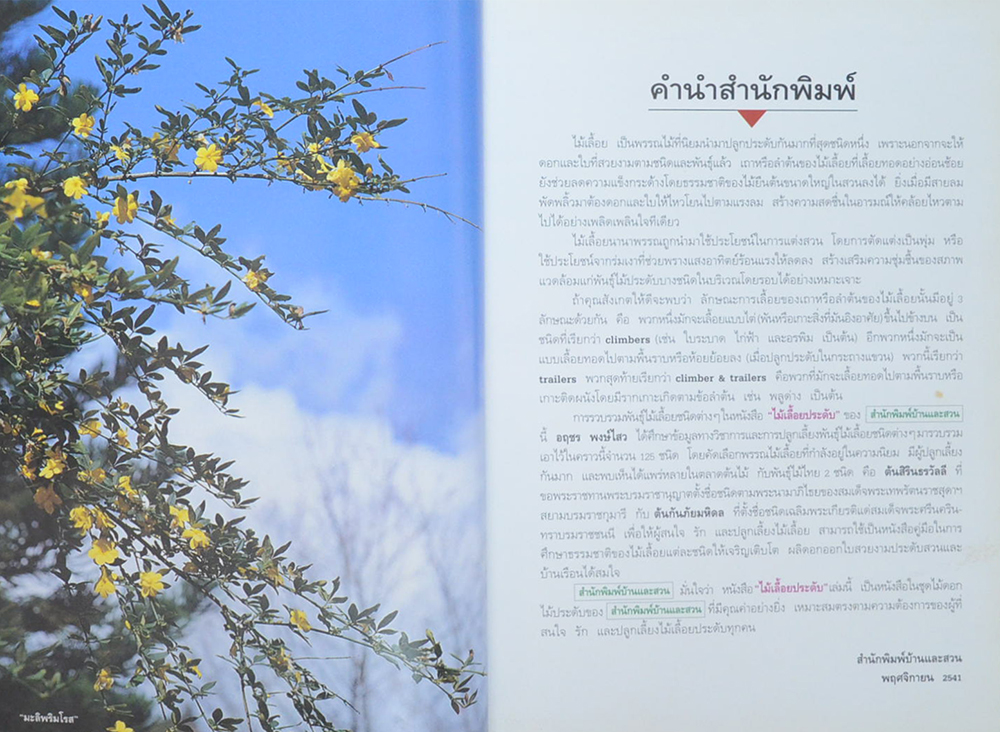 "มะลิพริมโรส"
คำนำสำนักพิมพ์
ไม้เลื้อย เป็นพรรณไม้ที่นิยมนำมาปลูกประดับกันมากที่สุดชนิดหนึ่ง เพราะนอกจากจะให้
ดอกและใบที่สวยงามตามชนิดและพันธุ์แล้ว เถาหรือลำต้นของไม้เลื้อยที่เลื้อยทอดอย่างอ่อนช้อย
ยังช่วยลดความแข็งกระด้างโดยธรรมชาติของไม้ยืนต้นขนาดใหญ่ในสวนลงได้ ยิ่งเมื่อมีสายลม
พัดพลิ้วมาต้องดอกและใบให้ไหวโยนไปตามแรงลม สร้างความสดชื่นในอารมณ์ให้คล้อยไหวตาม
ไปได้อย่างเพลิดเพลินใจทีเดียว
ไม้เลื้อยนานาพรรณถูกนำมาใช้ประโยชน์ในการแต่งสวน โดยการตัดแต่งเป็นพุ่ม หรือ
ใช้ประโยชน์จากร่มเงาที่ช่วยพรางแสงอาทิตย์ร้อนแรงให้ลดลง สร้างเสริมความชุ่มชื้นของสภาพ
แวดล้อมแก่พันธุ์ไม้ประดับบางชนิดในบริเวณโดยรอบได้อย่างเหมาะเจาะ
ถ้าคุณสังเกตให้ดีจะพบว่า ลักษณะการเลื้อยของเถาหรือลำต้นของไม้เลื้อยนั้นมีอยู่ 3
ลักษณะด้วยกัน คือ พวกหนึ่งมักจะเลื้อยแบบไต่(พันหรือเกาะสิ่งที่มันอิงอาศัย)ขึ้นไปข้างบน เป็น
ชนิดที่เรียกว่า climbers (เช่น ใบระบาด ไก่ฟ้า และอรพิม เป็นต้น) อีกพวกหนึ่งมักจะเป็น
แบบเลื้อยทอดไปตามพื้นราบหรือห้อยย้อยลง (เมื่อปลูกประดับในกระถางแขวน) พวกนี้เรียกว่า
trailers พวกสุดท้ายเรียกว่า climber & trailers คือพวกที่มักจะเลื้อยทอดไปตามพื้นราบหรือ
เกาะติดผนังโดยมีรากเกาะเกิดตามข้อลำต้น เช่น พลูด่าง เป็นต้น
การรวบรวมพันธุ์ไม้เลื้อยชนิดต่างๆในหนังสือ "ไม้เลื้อยประดับ" ของ สำนักพิมพ์บ้านและสวน
นี้ อฤชร พงษ์ไสว ได้ศึกษาข้อมูลทางวิชาการและการปลูกเลี้ยงพันธุ์ไม้เลื้อยชนิดต่างๆมารวบรวม
เอาไว้ในคราวนี้จำนวน 125 ชนิด โดยคัดเลือกพรรณไม้เลื้อยที่กำลังอยู่ในความนิยม มีผู้ปลูกเลี้ยง
กันมาก และพบเห็นได้แพร่หลายในตลาดต้นไม้ กับพันธุ์ไม้ไทย 2 ชนิด คือ ต้นสิรินธรวัลลี ที่
ขอพระราชทานพระบรมราชานุญาตตั้งชื่อชนิดตามพระนามาภิไธยของสมเด็จพระเทพรัตนราชสุดาฯ
สยามบรมราชกุมารี กับ ต้นกันภัยมหิดล ที่ตั้งชื่อชนิดเฉลิมพระเกียรติแด่สมเด็จพระศรีนครินท-
ราบรมราชชนนี เพื่อให้ผู้สนใจ รัก และปลูกเลี้ยงไม้เลื้อย สามารถใช้เป็นหนังสือคู่มือในการ
ศึกษาธรรมชาติของไม้เลื้อยแต่ละชนิดให้เจริญเติบโต ผลิดอกออกใบสวยงามประดับสวนและ
บ้านเรือนได้สมใจ
สำนักพิมพ์บ้านและสวน มั่นใจว่า หนังสือ"ไม้เลื้อยประดับ"เล่มนี้ เป็นหนังสือในชุดไม้ดอก
ไม้ประดับของ สำนักพิมพ์บ้านและสวน ที่มีคุณค่าอย่างยิ่ง เหมาะสมตรงตามความต้องการของผู้ที่
สนใจ รัก และปลูกเลี้ยงไม้เลื้อยประดับทุกคน
สำนักพิมพ์บ้านและสวน
พฤศจิกายน 2541